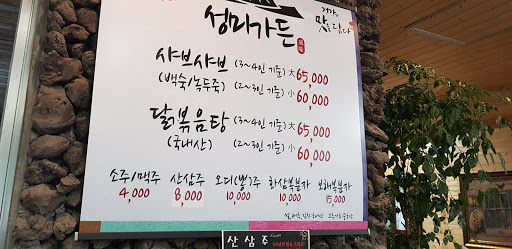 성미가든
거기는
맛을 담다
샤브샤브 (3~4인 기준) 大 65,000
(백숙/녹두죽) (2~3인 기준) 小 60,000
닭볶음탕 (3~4인 기준) 大 65,000
(국내산) (2~3인 기준) 小 60,000
소주/맥주 산삼주 오디(뽕)주 화삼복분자 보해복분자
4,000 8,000 10,000 10,000 15,000
산삼주